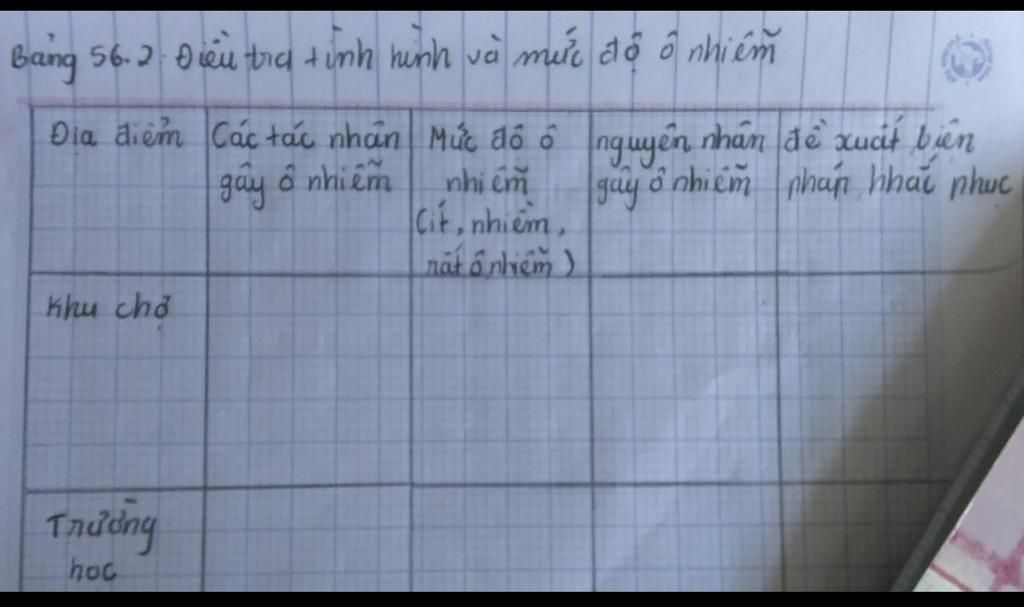 Bảng 56.2 Điều tra tình hình và mức độ ô nhiễm
Địa điểm
Các tác nhân
gây ô nhiễm
Mức độ ô
nhiễm
(ít, nhiềm,
rất ô nhiễm)
nguyên nhân
gây ô nhiễm
đề xuất biện
pháp khắc phục
Khu chợ
Trường
học